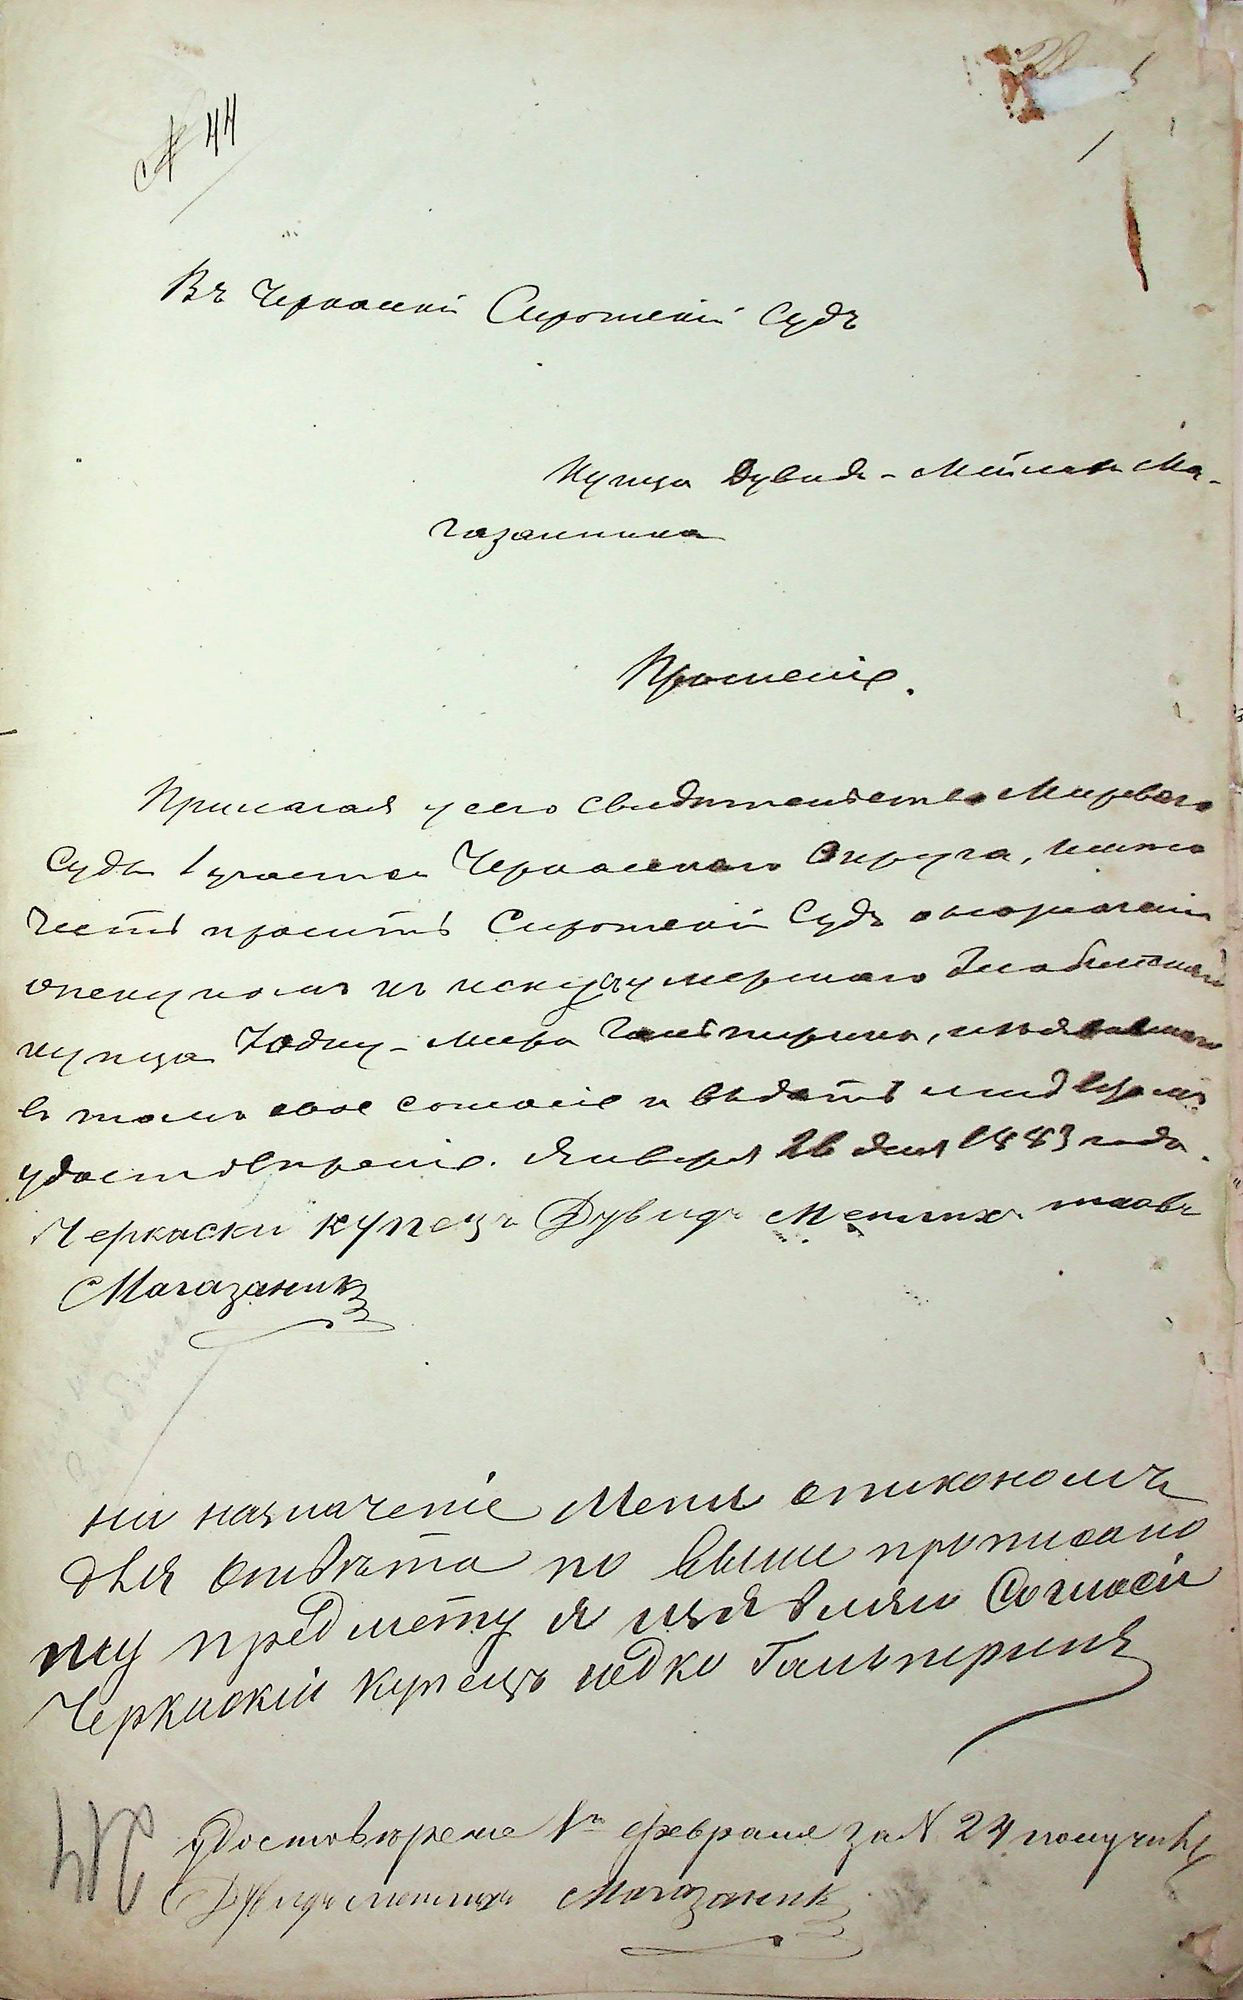 № 44
Въ Черкаский Сиротский Судъ
Купца Дувидъ-Мейлаха Ма-
газанника
Прошеніе.
Прилагая у сего свидѣтельство Мироваго
Судьи 1 участка Черкаскаго Округа, имѣю
честь просить Сиротскій Судъ о назначеніи
опекуномъ къ иску умершаго
купца Іодку-Меера Гальперина, изъявившаго
въ томъ свое согласіе и выдать мнѣ въ томъ
удостовѣреніе. Января 26 дня 1883 года.
Черкаски купецъ Дувидъ Мейлихъ
Магазаникъ
На назначеніе Меня опикономъ
для отвѣта по выше прописано
му предмету я изъявляю Согласіи
Черкаскій Купецъ Іедко Гальперинъ
удостовѣрение 1го февраля за N 24 получилъ
Дувидъ Мейлихъ Магазаникъ